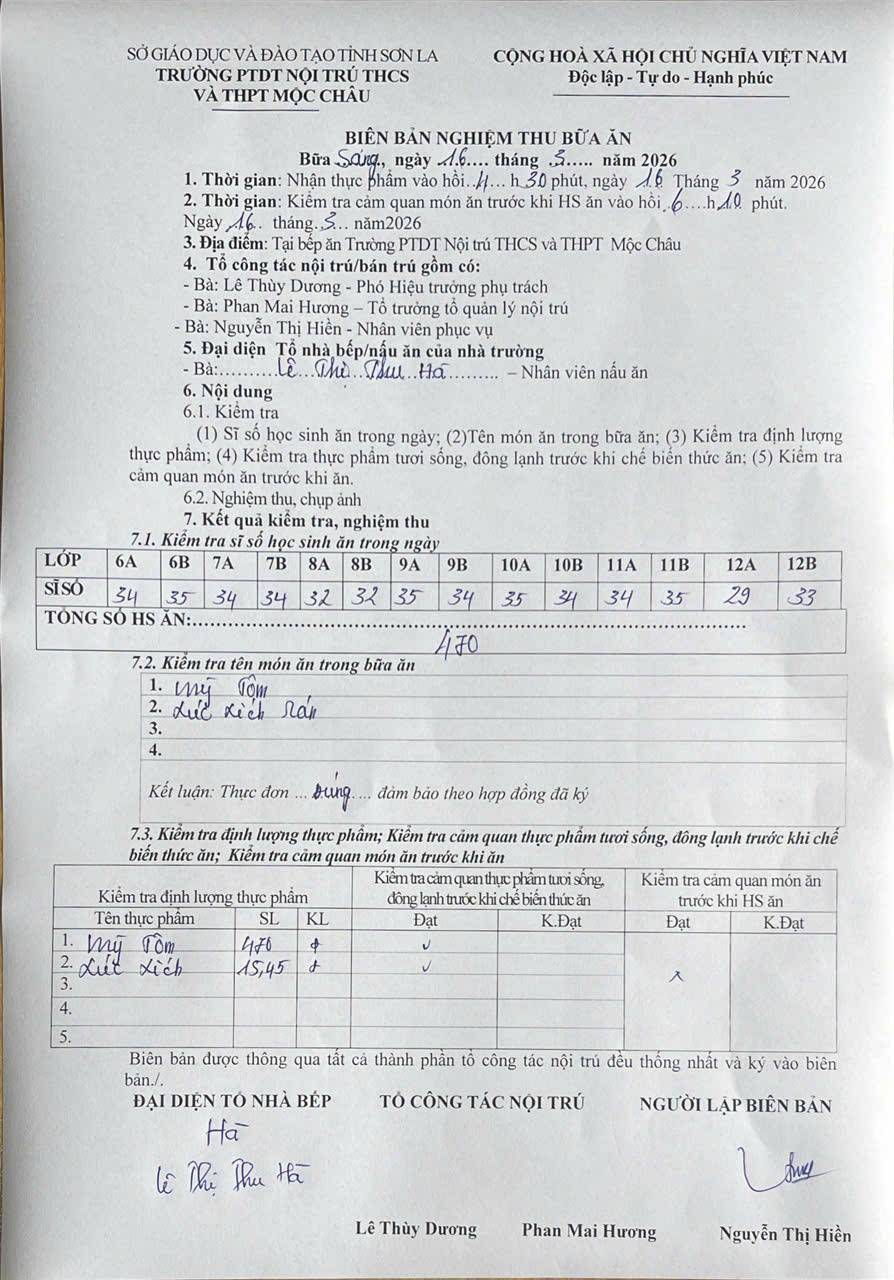 SỞ GIÁO DỤC VÀ ĐÀO TẠO TỈNH SƠN LA
TRƯỜNG PTDT NỘI TRÚ THCS
VÀ THPT MỘC CHÂU
CỘNG HOÀ XÃ HỘI CHỦ NGHĨA VIỆT NAM
Độc lập - Tự do - Hạnh phúc
BIÊN BẢN NGHIỆM THU BỮA ĂN
Bữa Sáng, ngày 16.... tháng .3..... năm 2026
1. Thời gian: Nhận thực phẩm vào hồi..4... h 30 phút, ngày 16. Tháng 3 năm 2026
2. Thời gian: Kiểm tra cảm quan món ăn trước khi HS ăn vào hồi .6....h10. phút.
Ngày 16.. tháng.3... năm2026
3. Địa điểm: Tại bếp ăn Trường PTDT Nội trú THCS và THPT Mộc Châu
4. Tổ công tác nội trú/bán trú gồm có:
- Bà: Lê Thùy Dương - Phó Hiệu trưởng phụ trách
- Bà: Phan Mai Hương – Tổ trưởng tổ quản lý nội trú
- Bà: Nguyễn Thị Hiền - Nhân viên phục vụ
5. Đại diện Tổ nhà bếp/nấu ăn của nhà trường
- Bà:.........Lê...Thị...Thu...Hà......... – Nhân viên nấu ăn
6. Nội dung
6.1. Kiểm tra
(1) Sĩ số học sinh ăn trong ngày; (2)Tên món ăn trong bữa ăn; (3) Kiểm tra định lượng
thực phẩm; (4) Kiểm tra thực phẩm tươi sống, đông lạnh trước khi chế biến thức ăn; (5) Kiểm tra
cảm quan món ăn trước khi ăn.
6.2. Nghiệm thu, chụp ảnh
7. Kết quả kiểm tra, nghiệm thu
7.1. Kiểm tra sĩ số học sinh ăn trong ngày
LỚP 6A 6B 7A 7B 8A 8B 9A 9B 10A 10B 11A 11B 12A 12B
SĨ SỐ 34 35 34 34 32 32 35 34 35 34 34 35 29 33
TỔNG SỐ HS ĂN:..........
470
7.2. Kiểm tra tên món ăn trong bữa ăn
1. Mỹ Tôm
2. Xúc Xích Rán
3.
4.
Kết luận: Thực đơn ... Đúng.... đảm bảo theo hợp đồng đã ký
7.3. Kiểm tra định lượng thực phẩm; Kiểm tra cảm quan thực phẩm tươi sống, đông lạnh trước khi chế
biến thức ăn; Kiểm tra cảm quan món ăn trước khi ăn
Kiểm tra định lượng thực phẩm
Kiểm tra cảm quan thực phẩm tươi sống,
đông lạnh trước khi chế biến thức ăn
Kiểm tra cảm quan món ăn
trước khi HS ăn
Tên thực phẩm SL KL Đạt K.Đạt Đạt K.Đạt
1. Mỹ Tôm 470
2. Xúc Xích 15,45
3.
4.
5.
Biên bản được thông qua tất cả thành phần tổ công tác nội trú đều thống nhất và ký vào biên
bản./.
ĐẠI DIỆN TỔ NHÀ BẾP TỔ CÔNG TÁC NỘI TRÚ NGƯỜI LẬP BIÊN BẢN
Hà
Lê Thị Thu Hà
Lê Thùy Dương Phan Mai Hương Nguyễn Thị Hiền